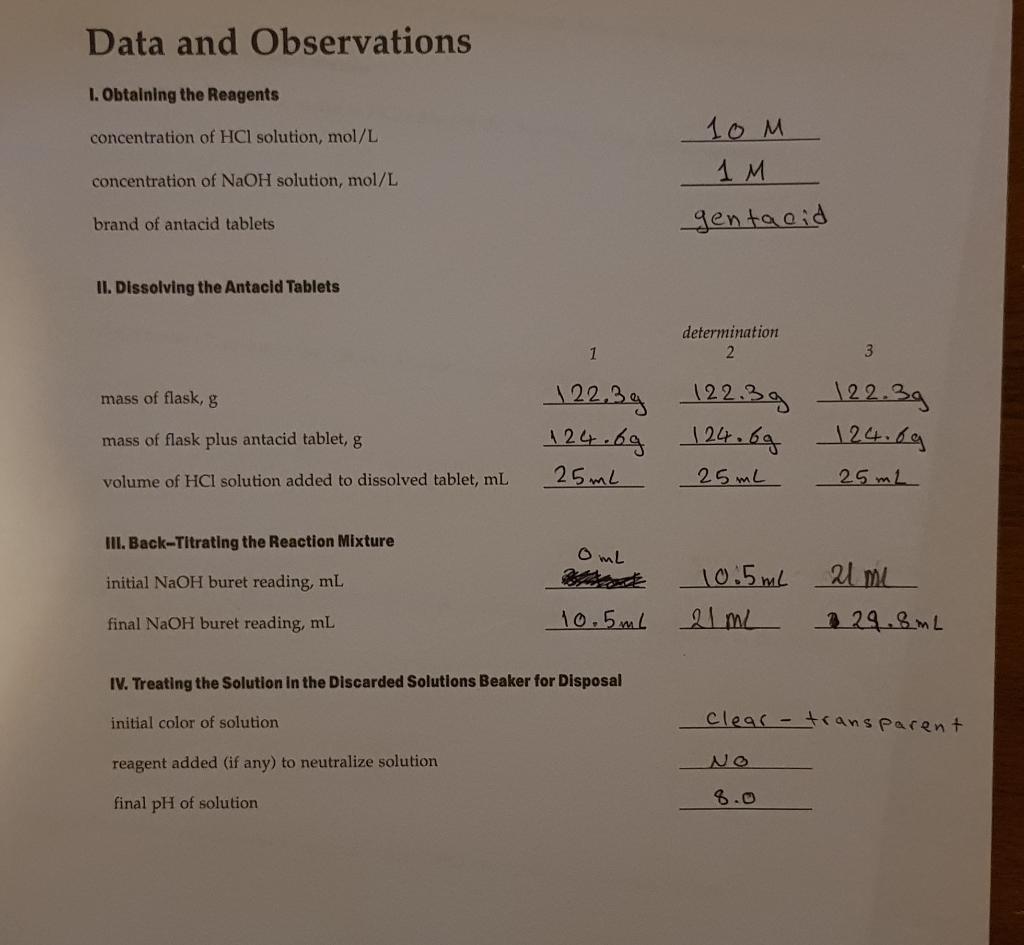 Data and Observations
I. Obtaining the Reagents
concentration of HCl solution, mol/L 10 M
concentration of NaOH solution, mol/L 1 M
brand of antacid tablets gentacid
II. Dissolving the Antacid Tablets
determination
1 2 3
mass of flask, g 122.3g 122.3g 122.3g
mass of flask plus antacid tablet, g 124.6g 124.6g 124.6g
volume of HCl solution added to dissolved tablet, mL 25mL 25mL 25mL
III. Back–Titrating the Reaction Mixture
0 mL
initial NaOH buret reading, mL 10.5mL 21 ml
final NaOH buret reading, mL 10.5mL 21 mL 29.8mL
IV. Treating the Solution in the Discarded Solutions Beaker for Disposal
initial color of solution Clear - transparent
reagent added (if any) to neutralize solution NO
final pH of solution 8.0